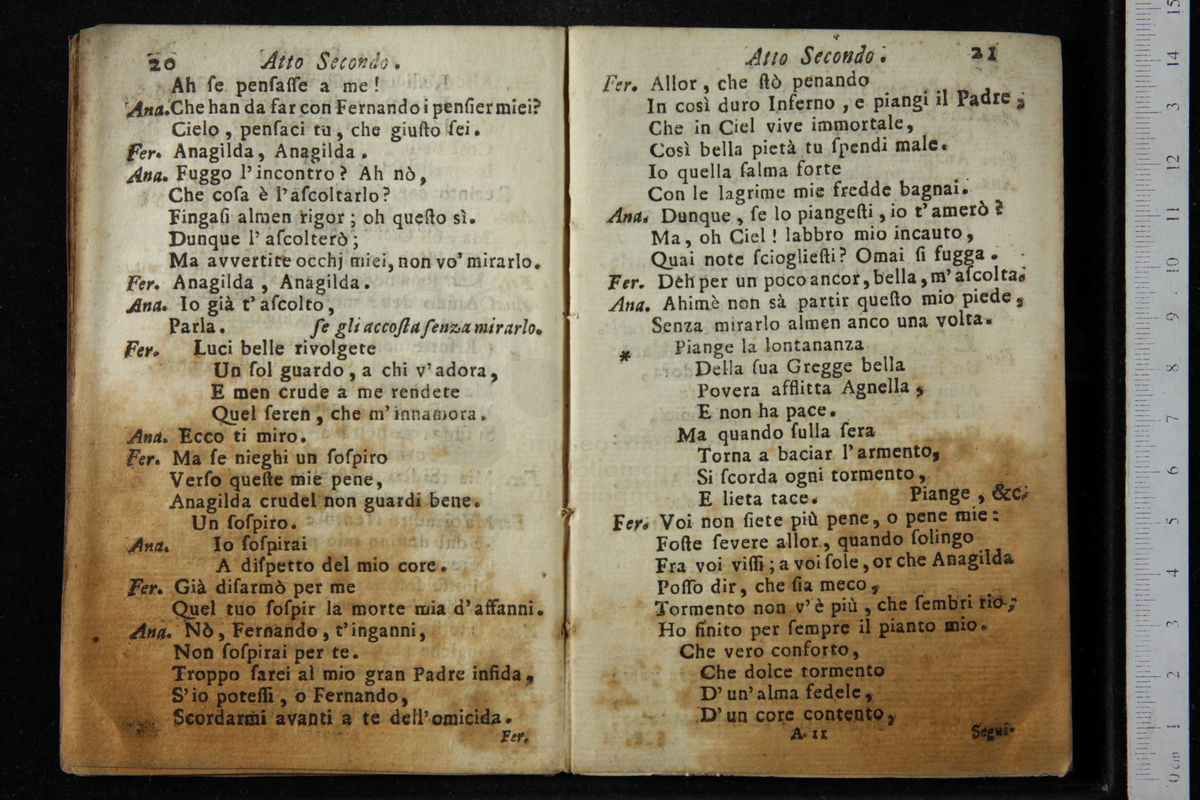 20 Atto Secondo.
Ah se pensasse a me!
Ana. Che han da far con Fernando i pensier miei?
Cielo, pensaci tu, che giusto sei.
Fer. Anagilda, Anagilda.
Ana. Fuggo l'incontro? Ah nò,
Che cosa è l'ascoltarlo?
Fingasi almen rigor; oh questo sì.
Dunque l'ascolterò;
Ma avvertite occhj miei, non vo' mirarlo.
Fer. Anagilda, Anagilda.
Ana. Io già t'ascolto,
Parla. se gli accosta senza mirarlo.
Fer. Luci belle rivolgete
Un sol guardo, a chi v'adora,
E men crude a me rendete
Quel seren, che m'innamora.
Ana. Ecco ti miro.
Fer. Ma se nieghi un sospiro
Verso queste mie pene,
Anagilda crudel non guardi bene.
Un sospiro.
Ana. Io sospirai
A dispetto del mio core.
Fer. Già disarmò per me
Quel tuo sospir la morte mia d'affanni.
Ana. Nò, Fernando, t'inganni,
Non sospirai per te.
Troppo sarei al mio gran Padre infida,
S'io potessi, o Fernando,
Scordarmi avanti a te dell'omicida.
Fer.
Atto Secondo. 21
Fer. Allor, che stò penando
In così duro Inferno, e piangi il Padre,
Che in Ciel vive immortale,
Così bella pietà tu spendi male.
Io quella salma forte
Con le lagrime mie fredde bagnai.
Ana. Dunque, se lo piangesti, io t'amerò?
Ma, oh Ciel! labbro mio incauto,
Quai note sciogliesti? Omai si fugga.
Fer. Deh per un poco ancor, bella, m'ascolta.
Ana. Ahimè non sà partir questo mio piede,
Senza mirarlo almen anco una volta.
* Piange la lontananza
Della sua Gregge bella
Povera afflitta Agnella,
E non ha pace.
Ma quando sulla sera
Torna a baciar l'armento,
Si scorda ogni tormento,
E lieta tace. Piange, &c.
Fer. Voi non siete più pene, o pene mie:
Foste severe allor, quando solingo
Fra voi vissi; a voi sole, or che Anagilda
Posso dir, che sia meco,
Tormento non v'è più, che sembri rio;
Ho finito per sempre il pianto mio.
Che vero conforto,
Che dolce tormento
D'un'alma fedele,
D'un core contento,
A 11 Segui-
15
14
13
12
11
10
9
8
7
6
5
4
3
2
1
0 cm